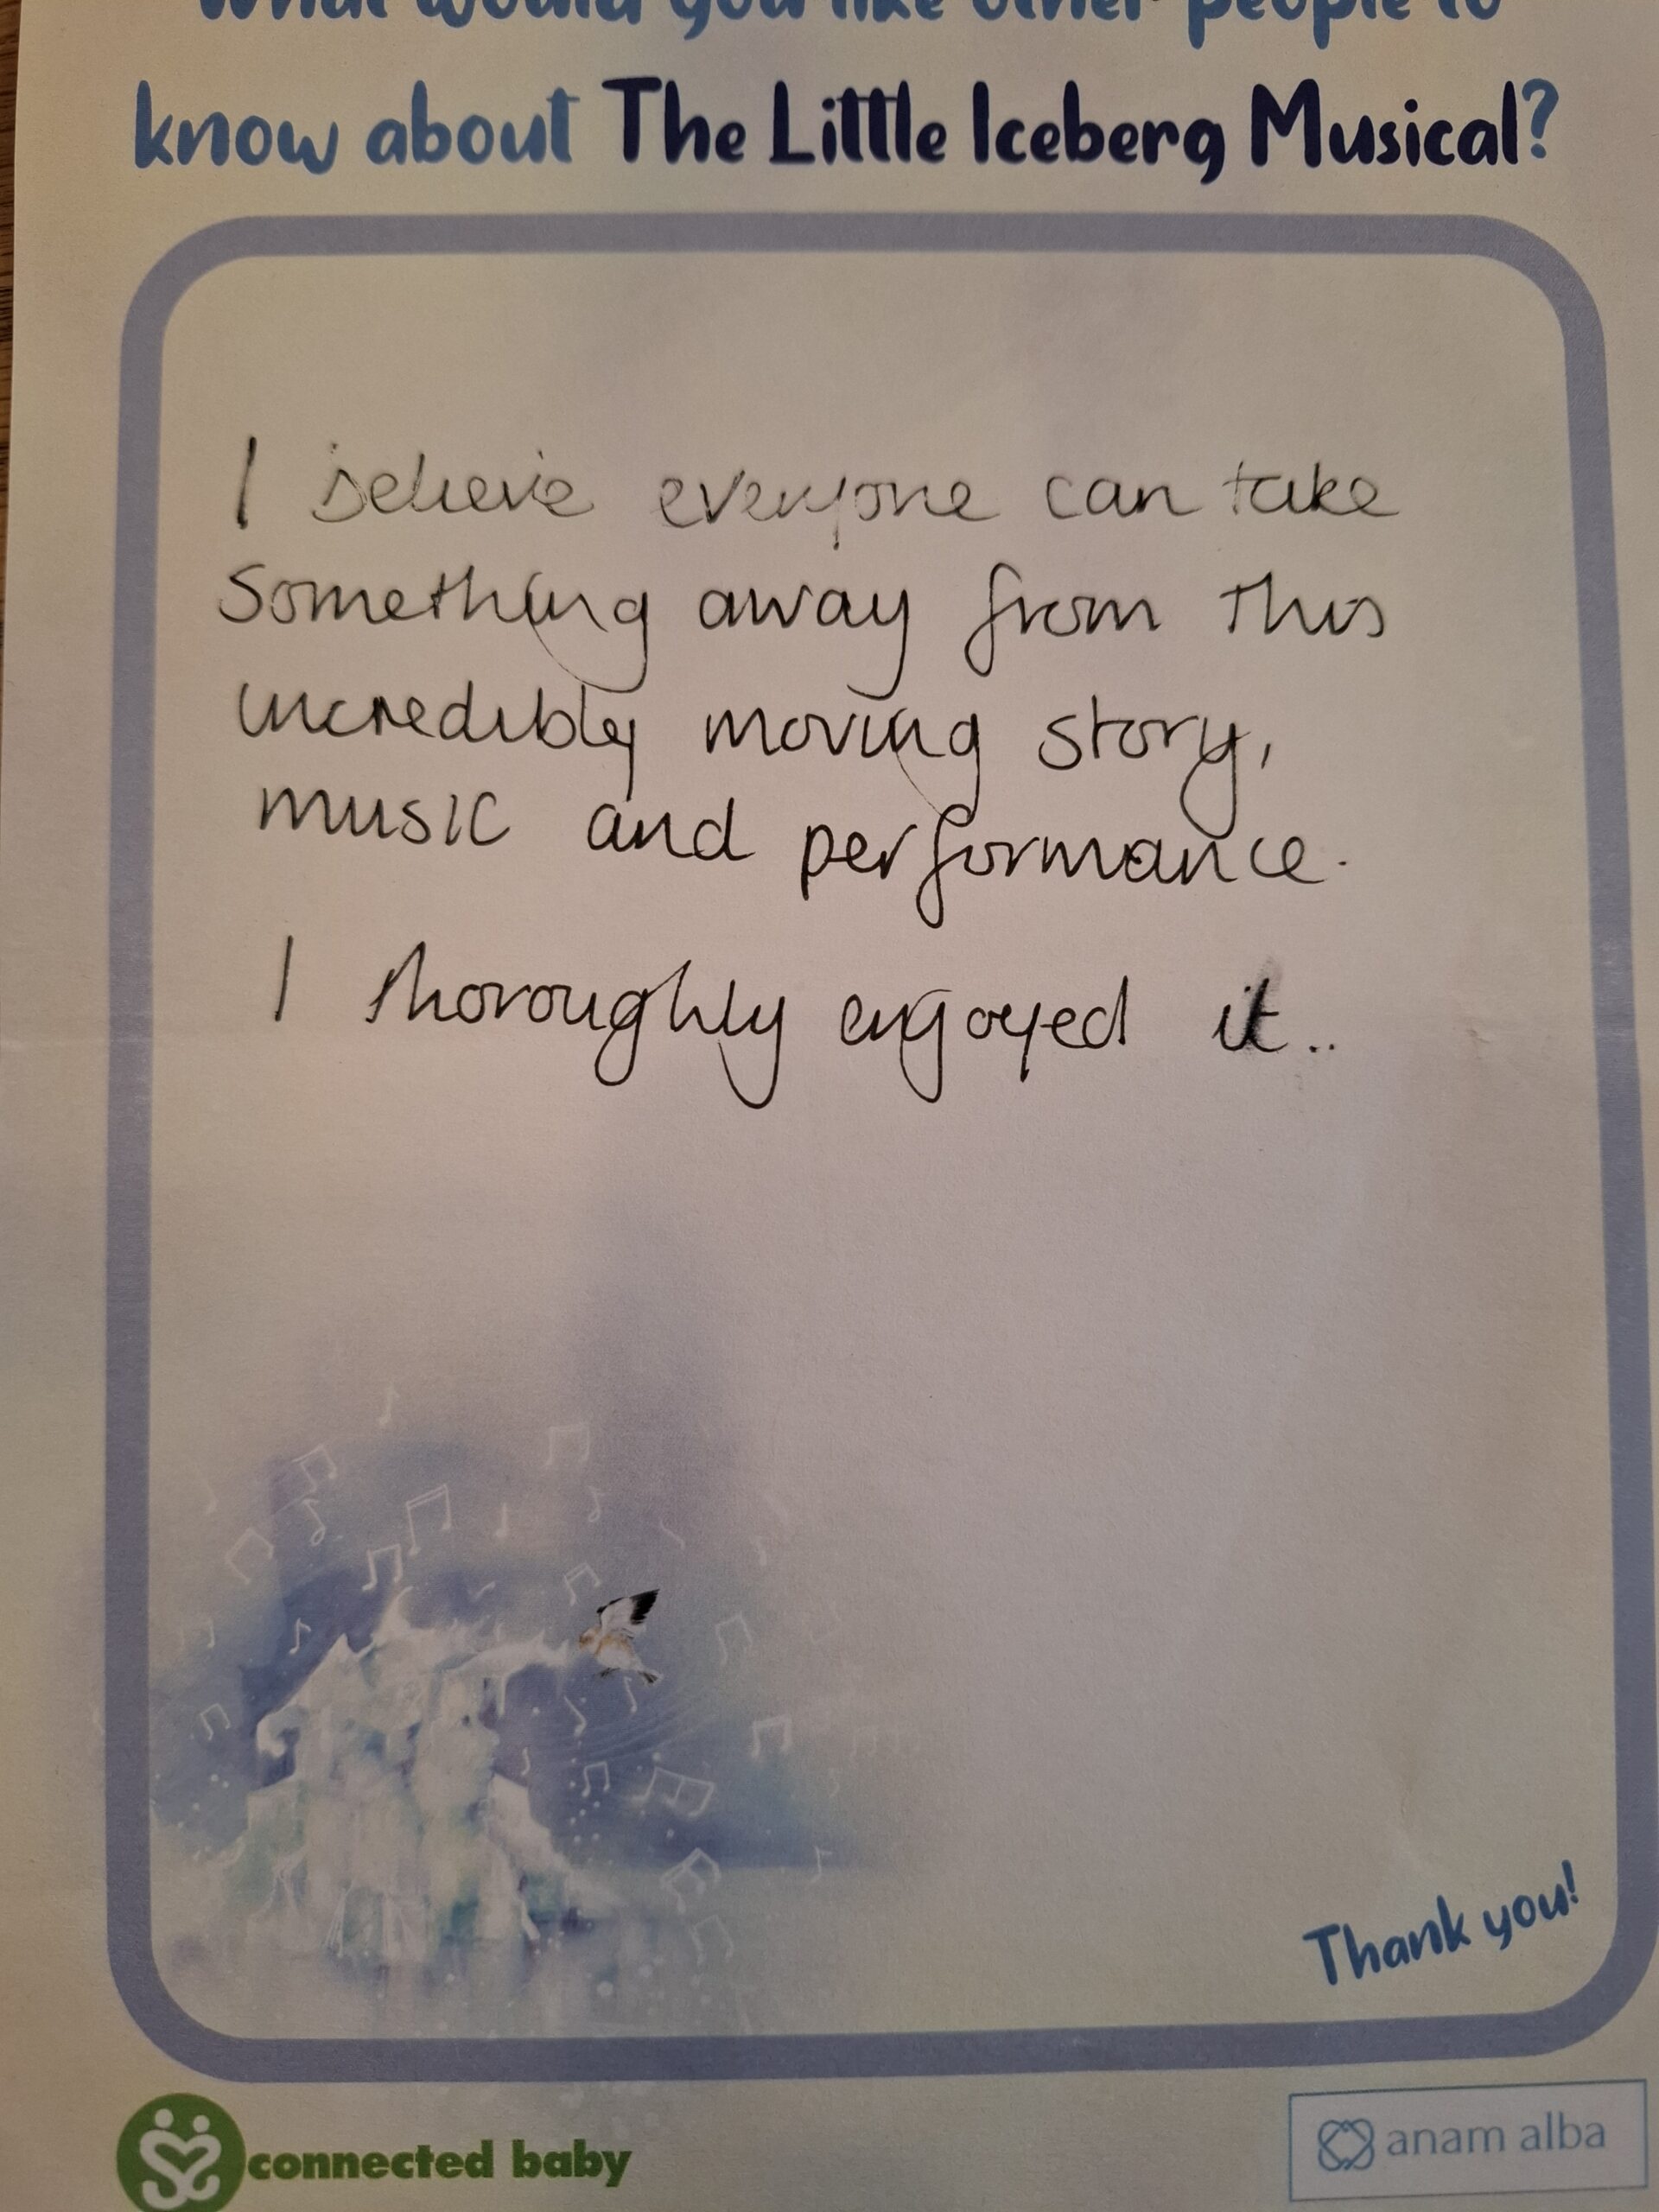 What would you like other people to
know about The Little Iceberg Musical?
I believe everyone can take
something away from this
incredibly moving story,
music and performance.
I thoroughly enjoyed it..
Thank you!
connected baby
anam alba